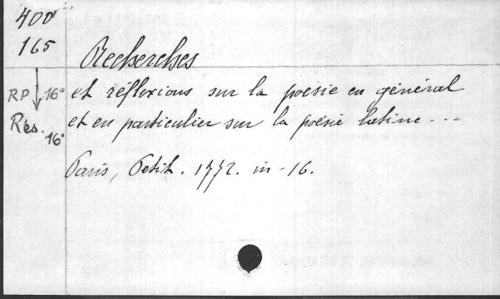 400
165
Recherches
RP 16° et réflexions sur la poésie en général
Rés. 16° et en particulier sur la poésie latine ...
Paris, Petit. 1772. in-16.